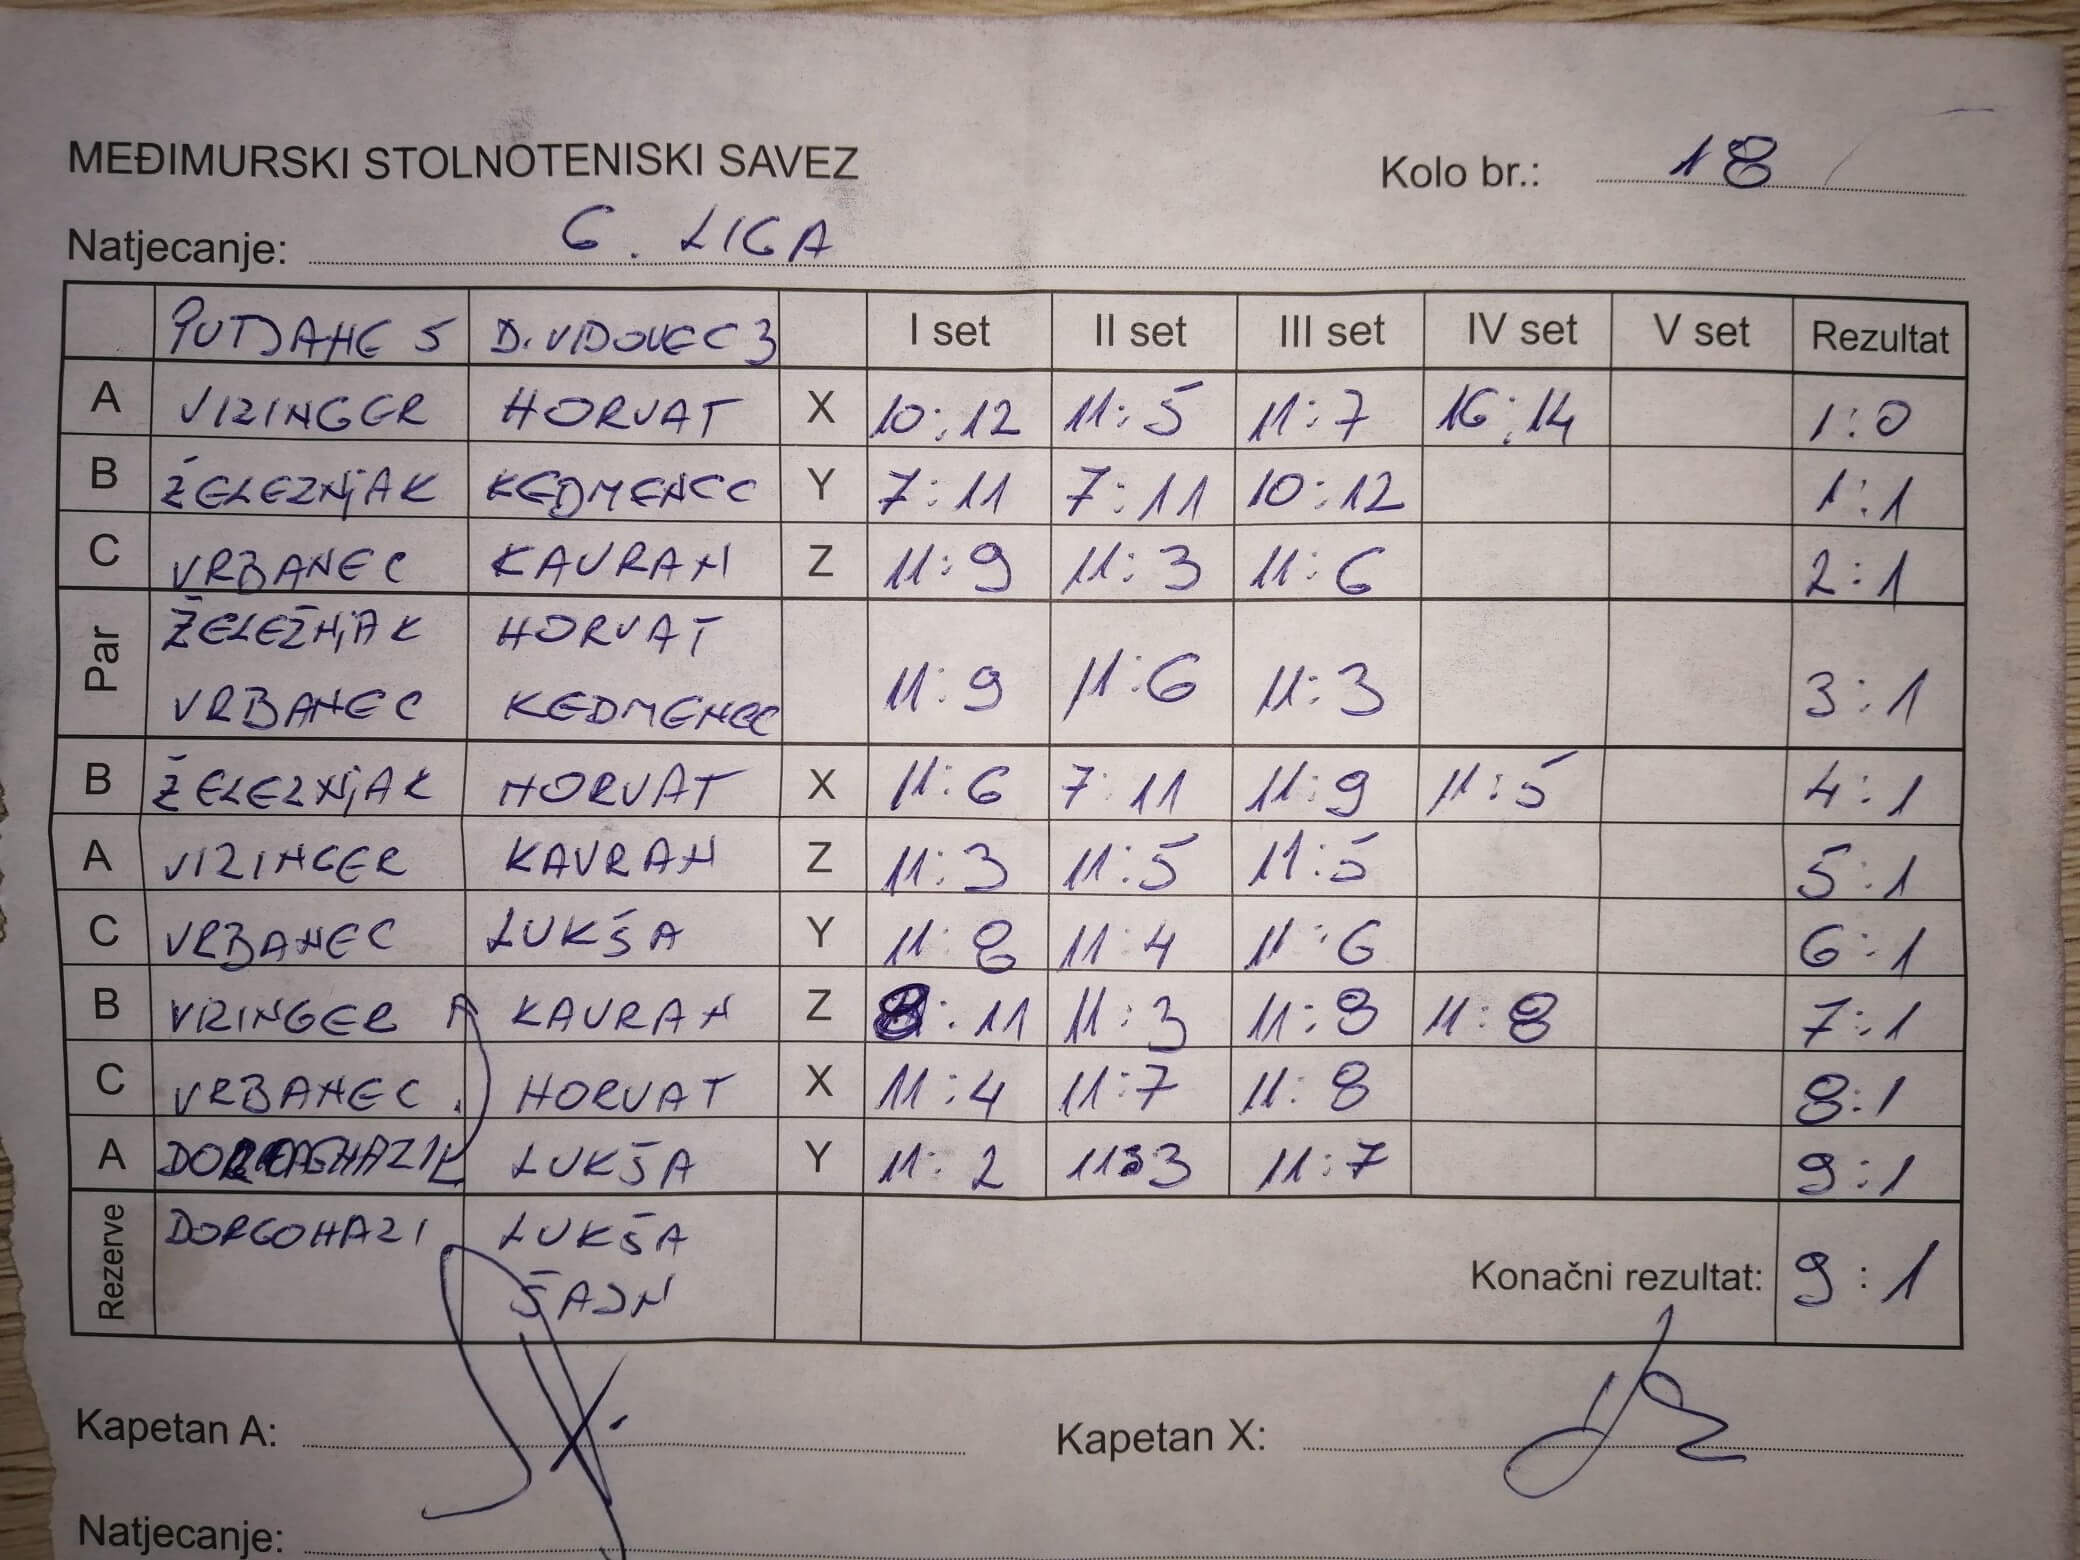 MEĐIMURSKI STOLNOTENISKI SAVEZ Kolo br.: 18
Natjecanje: 6. LIGA
PUTJANE 5 D. VIDOVEC 3 I set II set III set IV set V set Rezultat
A VIZINGER HORVAT X 10:12 11:5 11:7 16:14 1:0
B ŽELEZNjAK KEDMENEC Y 7:11 7:11 10:12 1:1
C VRBANEC KAVRAN Z 11:9 11:3 11:6 2:1
Par ŽELEŽNjAK HORVAT
VRBANEC KEDMENEC 11:9 11:6 11:3 3:1
B ŽELEZNjAK HORVAT X 11:6 7:11 11:9 11:5 4:1
A VIZINGER KAVRAN Z 11:3 11:5 11:5 5:1
C VRBANEC LUKŠA Y 11:8 11:4 11:6 6:1
B VIZINGER A KAVRAN Z 8:11 11:3 11:8 11:8 7:1
C VRBANEC HORVAT X 11:4 11:7 11:8 8:1
A LUKŠA Y 11:2 11:3 11:7 9:1
Rezerve DORGOHAZI LUKŠA
ŠAJN
Konačni rezultat: 9:1
Kapetan A: Kapetan X:
Natjecanje: